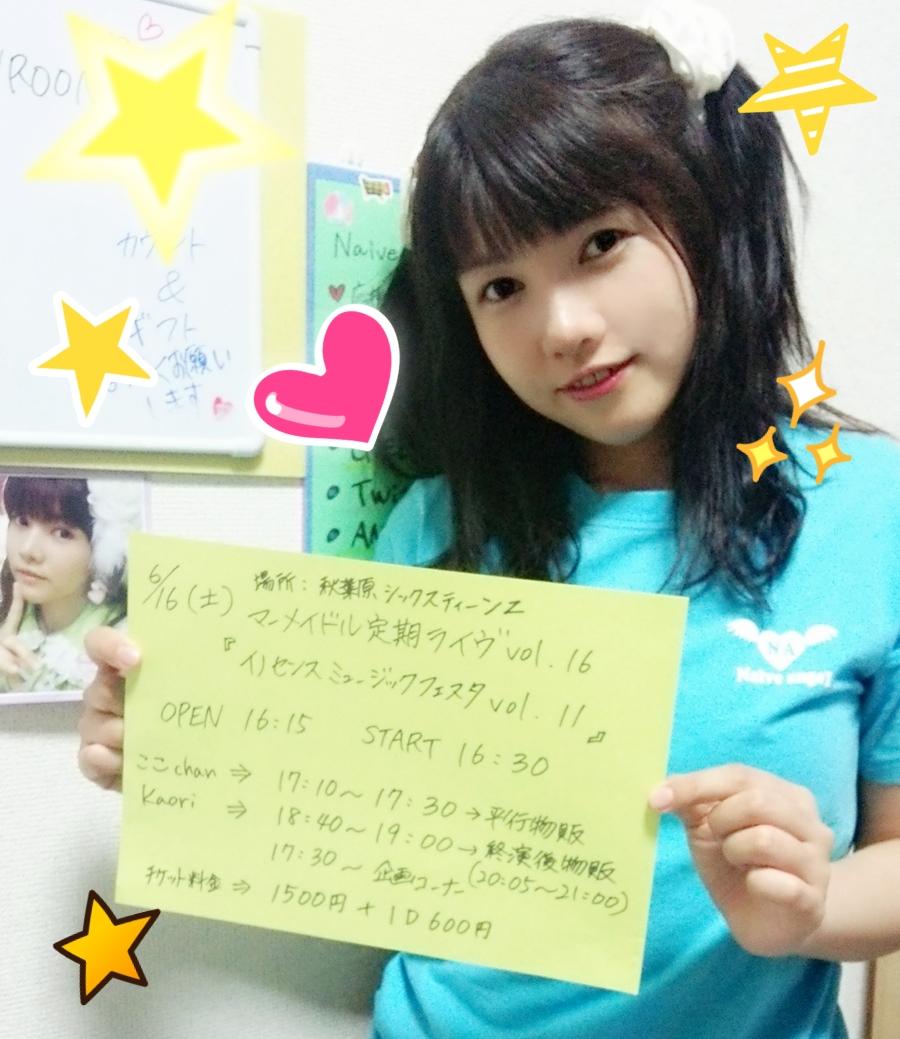 ROO
カウント
&
ギフト
くお願い
します
Naive
Twi
6/16(土)
場所：秋葉原シックスティーンZ
マーメイドル定期ライヴvol.16
『イノセンスミュージックフェスタvol.11』
OPEN 16:15 START 16:30
ここchan ⇒ 17:10〜17:30→平行物販
Kaori ⇒ 18:40〜19:00→終演後物販
(20:05〜21:00)
17:30〜企画コーナー
チケット料金 ⇒ 1500円+1D600円
NA
Naive angel